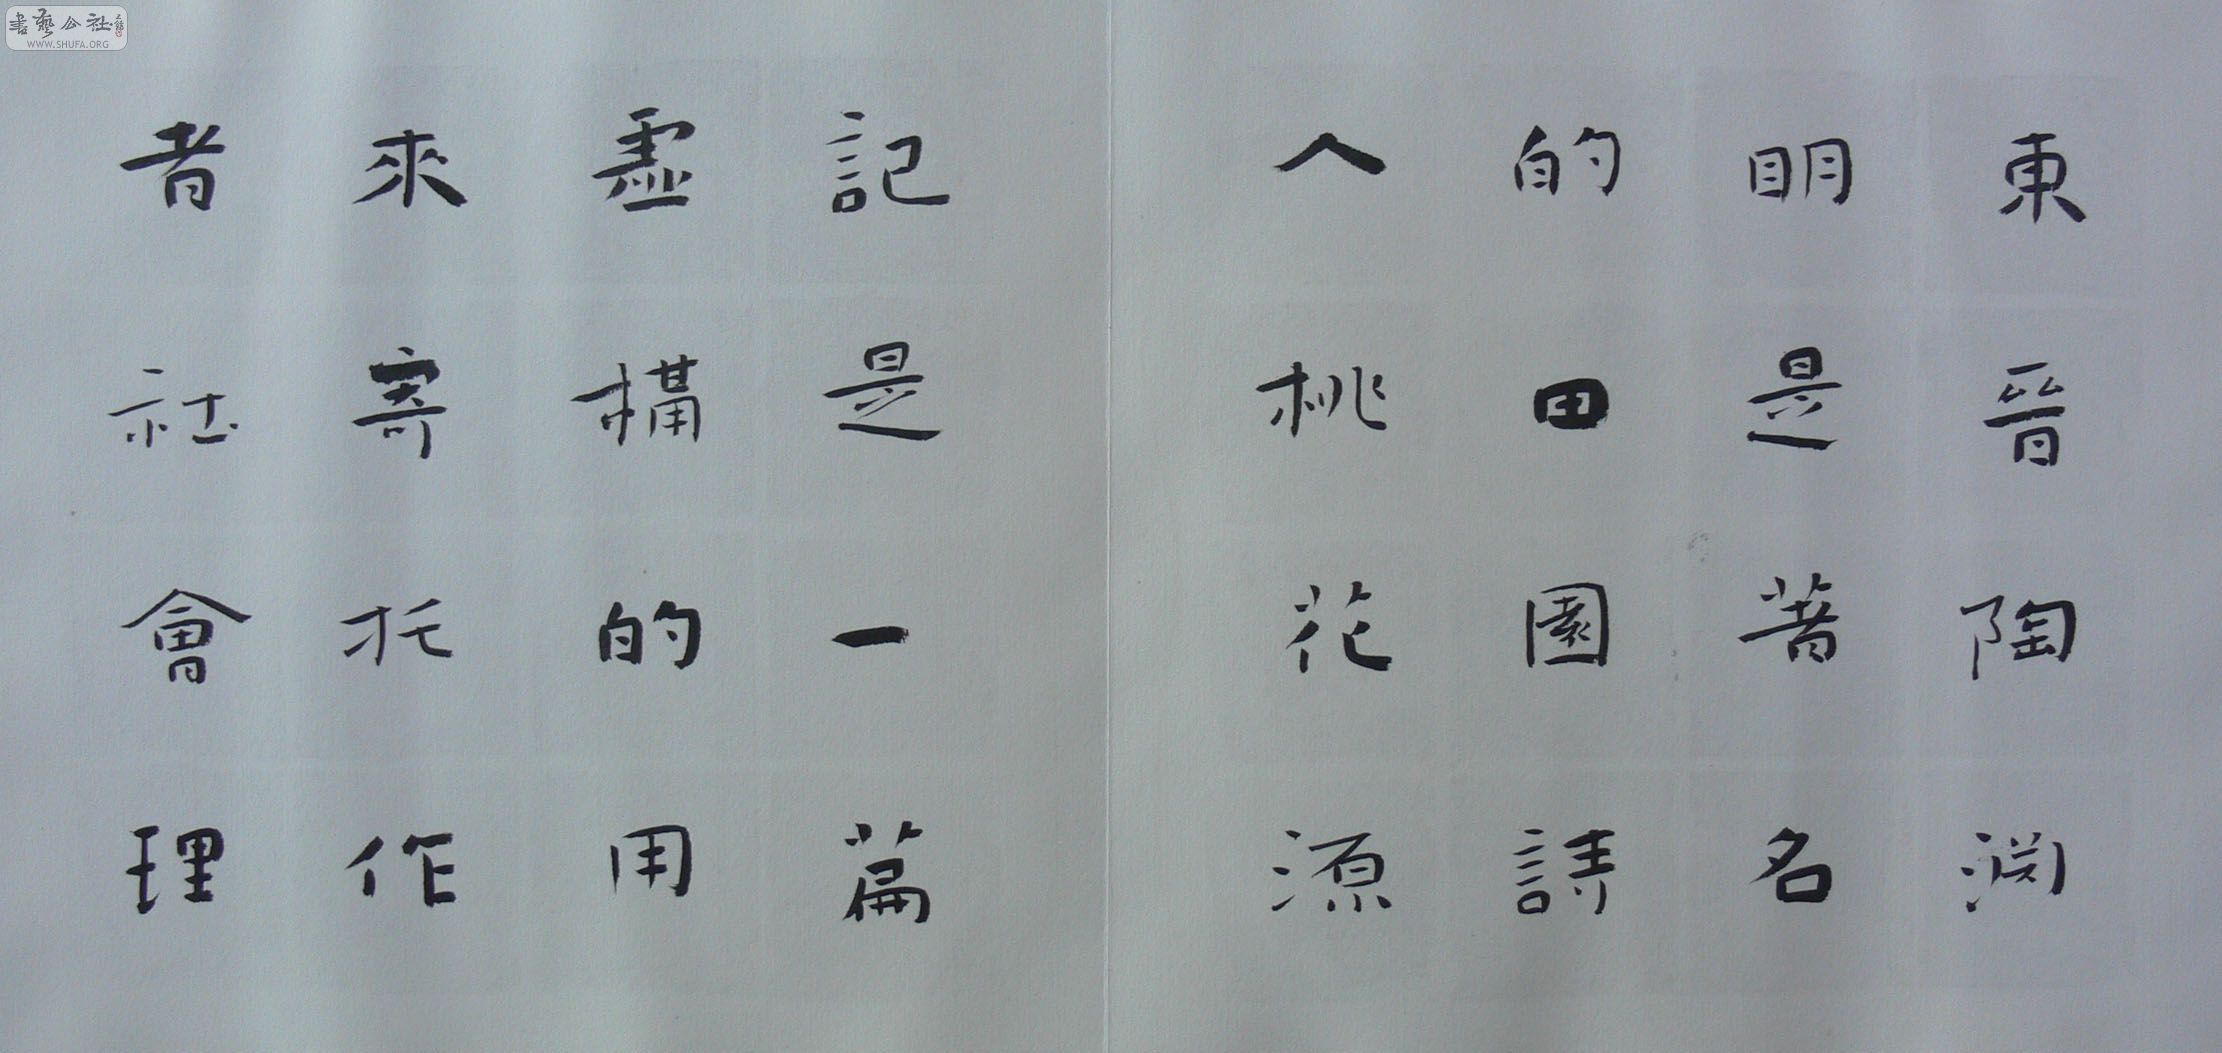 東晉陶淵
明是著名
的田園詩
人桃花源
記是一篇
虛構的用
來寄托作
者社會理
書藝公社
WWW.SHUFA.ORG